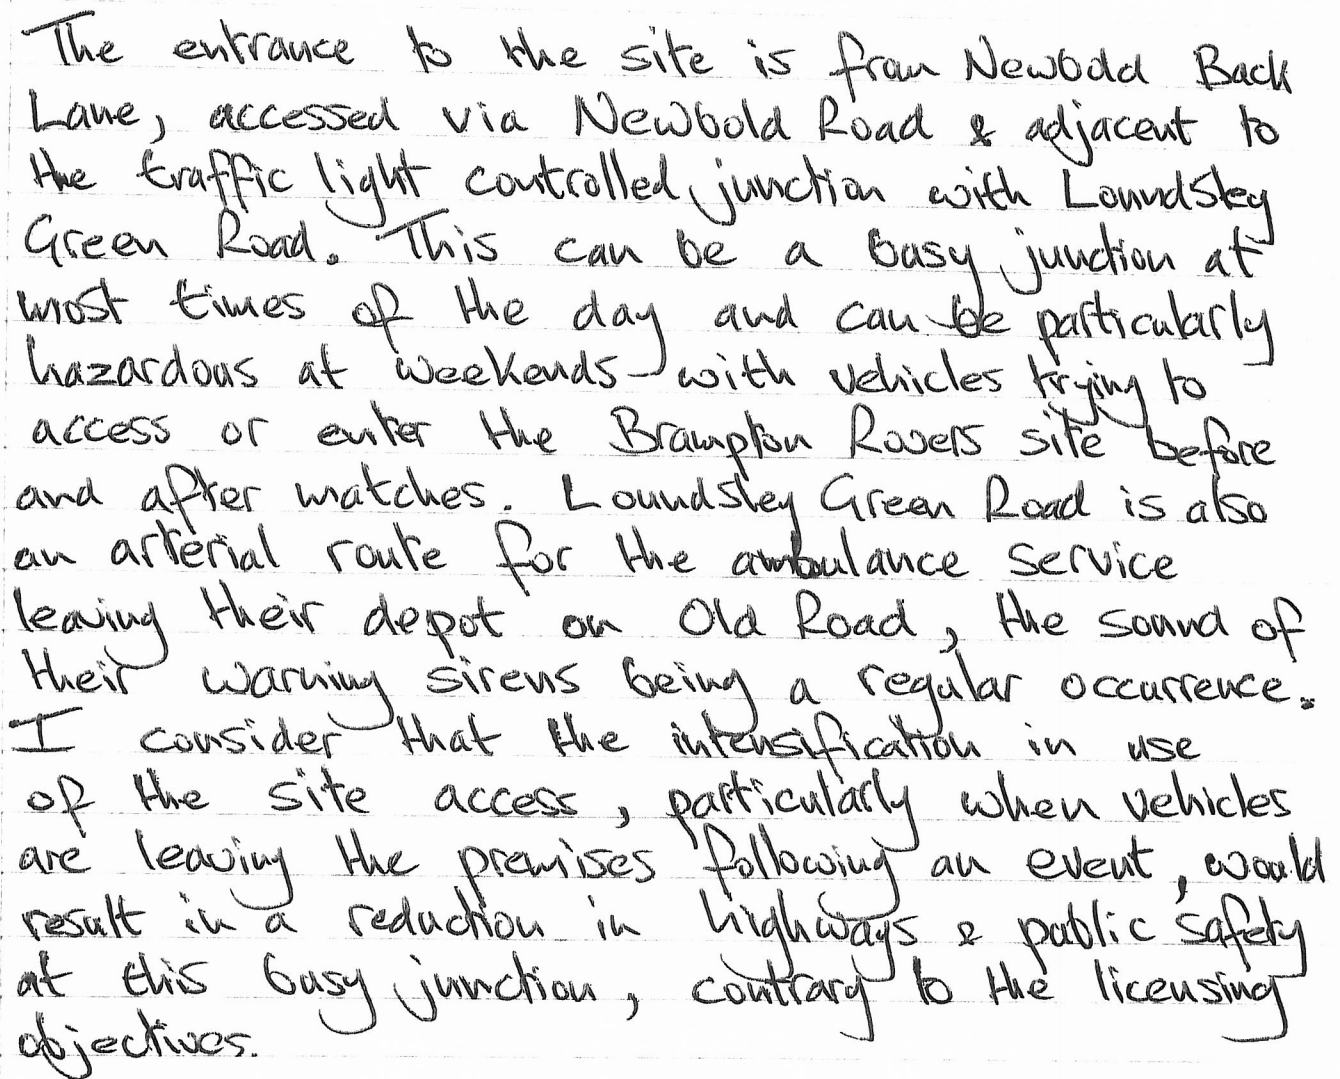 The entrance to the site is from Newbold Back
Lane, accessed via Newbold Road & adjacent to
the traffic light controlled junction with Loundsley
Green Road. This can be a busy junction at
most times of the day and can be particularly
hazardous at weekends with vehicles trying to
access or enter the Brampton Rovers site before
and after matches. Loundsley Green Road is also
an arterial route for the ambulance service
leaving their depot on Old Road, the sound of
their warning sirens being a regular occurrence.
I consider that the intensification in use
of the site access, particularly when vehicles
are leaving the premises following an event, would
result in a reduction in highways & public safety
at this busy junction, contrary to the licensing
objectives.